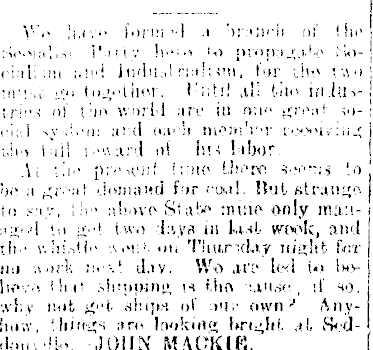 We have formed a branch of the
Socialist Party here to propagate So-
cialism and Industrialism, for the two
must go together. Until all the indus-
tries of the world are in one great so-
cial system and each member receiving
the full reward of his labor.
At the present time there seems to
be a great demand for coal. But strange
to say, the above State mine only man-
aged to get two days in last week, and
the whistle went on Thursday night for
no work next day. We are led to be-
lieve that shipping is the cause, if so,
why not get ships of our own? Any-
how, things are looking bright at Sed-
donville. JOHN MACKIE.